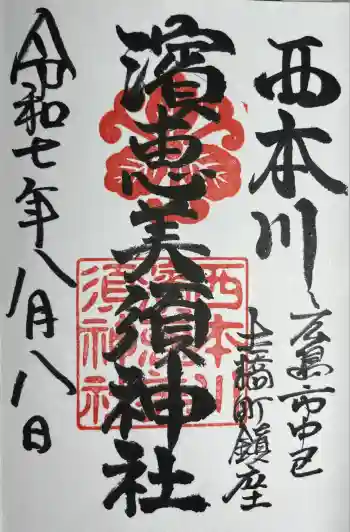 西本川
広島市中区
土橋町鎮座
濱恵美須神社
令和七年八月八日
西本川
濱恵美
須神社